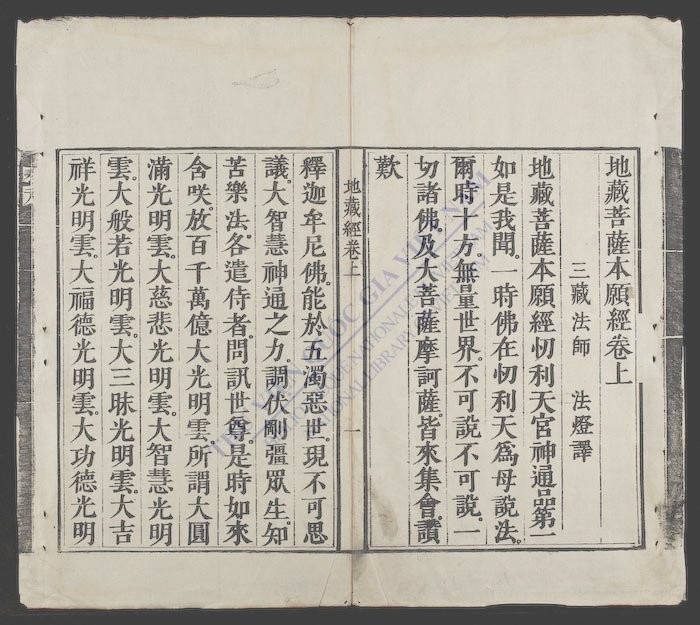 地藏菩薩本願經卷上
三藏法師　法燈譯
地藏菩薩本願經忉利天宮神通品第一
如是我聞。一時佛在忉利天。為母說法。
爾時十方無量世界。不可說不可說。一
切諸佛。及大菩薩摩訶薩。皆來集會。讚
歎
地藏經卷上
一
釋迦牟尼佛。能於五濁惡世。現不可思
議。大智慧神通之力。調伏剛彊眾生。知
苦樂法。各遣侍者。問訊世尊。是時如來
含咲。放百千萬億大光明雲。所謂大圓
滿光明雲。大慈悲光明雲。大智慧光明
雲。大般若光明雲。大三昧光明雲。大吉
祥光明雲。大福德光明雲。大功德光明
THƯ VIỆN QUỐC GIA VIỆT NAM
BIBLIOTHÈQUE NATIONALE DU VIETNAM
NATIONAL LIBRARY OF VIETNAM